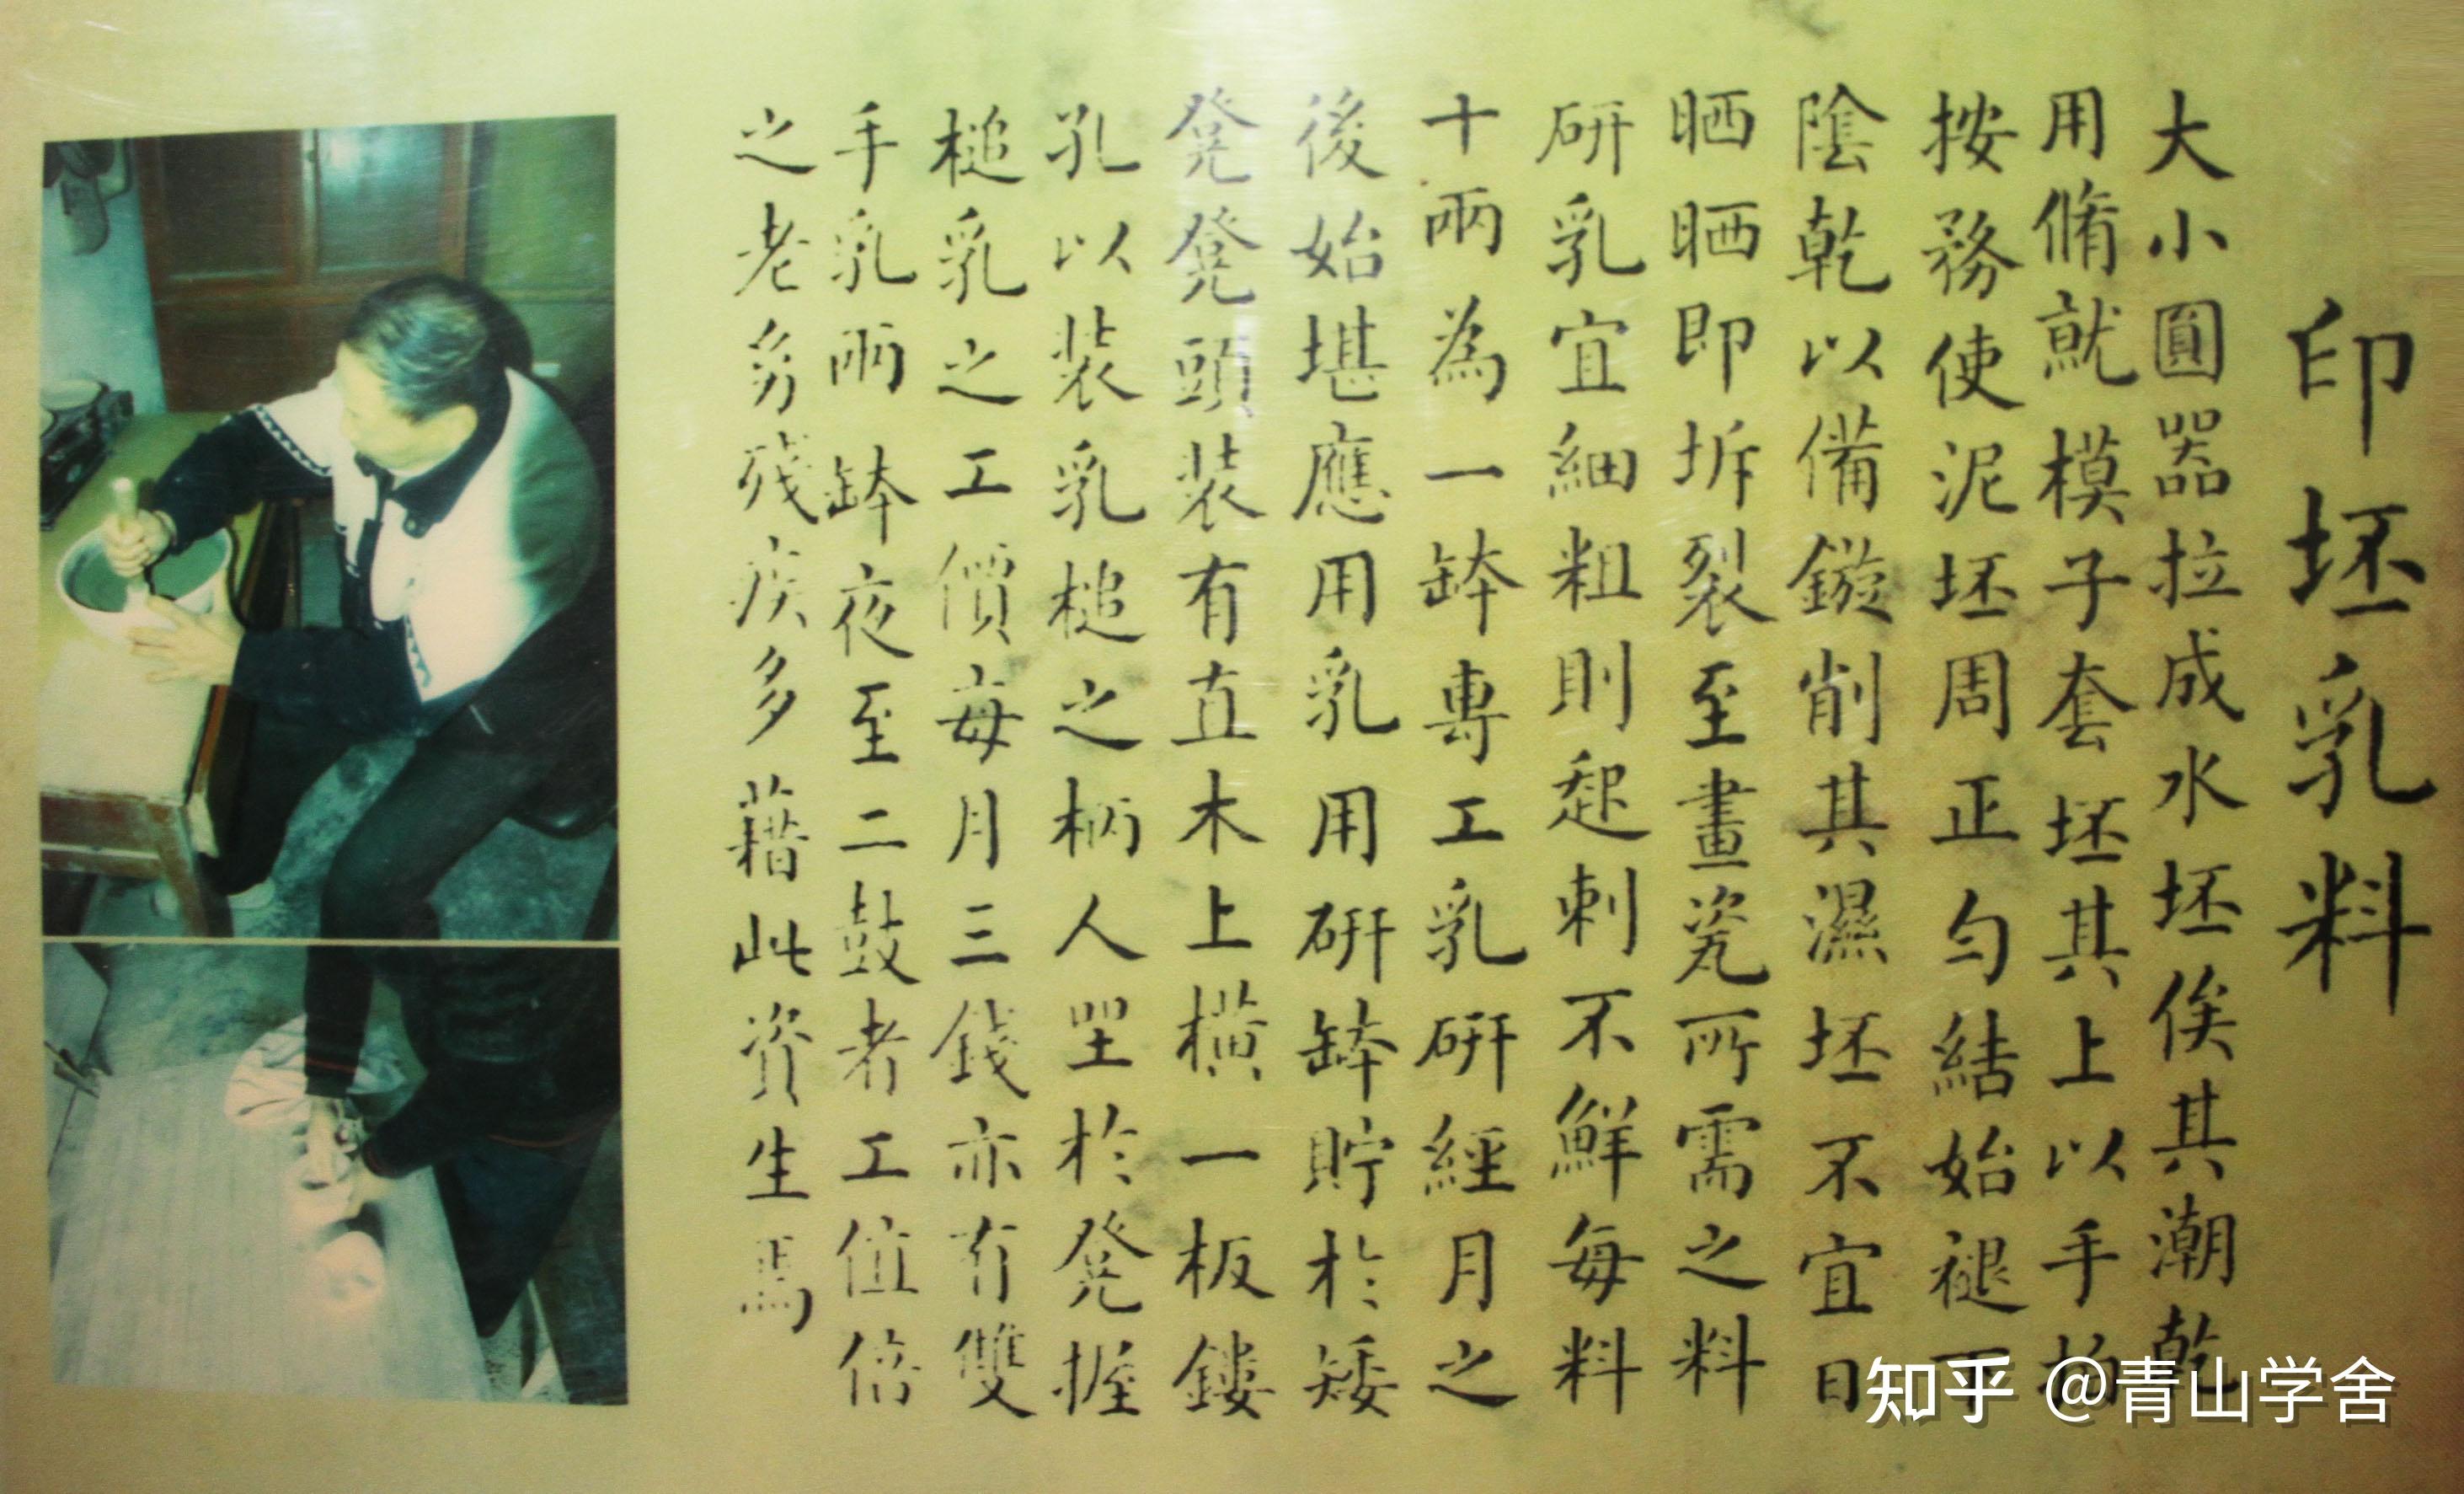 印坯乳料
大小圓器拉成水坯俟其潮乾
用脩就模子套坯其上以手拍
按務使泥坯周正勻結始褪下
陰乾以備鏇削其濕坯不宜日
晒晒即坼裂至畫瓷所需之料
研乳宜細粗則起刺不鮮每料
十兩為一缽專工乳研經月之
後始堪應用乳用研缽貯於矮
凳凳頭装有直木上橫一板鏤
孔以装乳槌之柄人坐於凳握
槌乳之工價每月三錢亦有雙
手乳兩缽夜至二鼓者工值倍
之老幼殘疾多藉此資生焉
知乎 @青山学舍